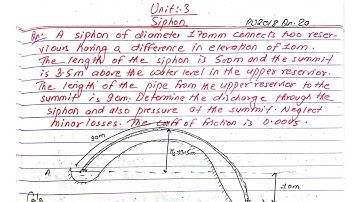 Unit:-3
Siphon
PU2018 Qn.2a
Qn:- A siphon of diameter 170mm connects two reser-
viours having a difference in elevation of 10m.
The length of the siphon is 500m and the summit
is 3.5m above the water level in the upper reservior.
The length of the pipe from the upper reservior to the
summit is 90m. Determine the discharge through the
siphon and also pressure at the summit. Neglect
minor losses. The coeff of friction is 0.005.
90m
A
10m